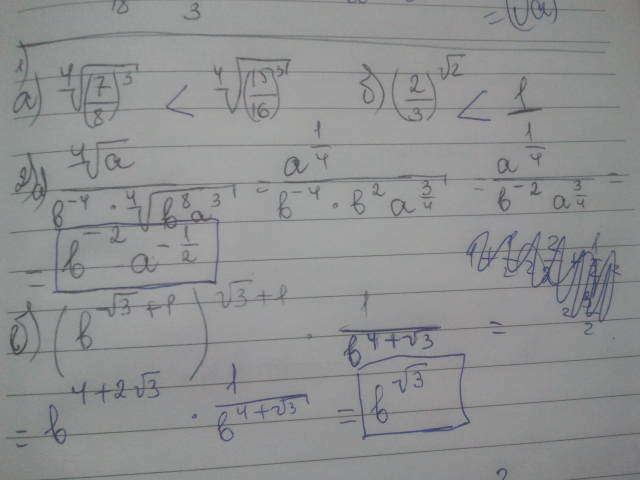 1) а) ⁴√(7/8)³ < ⁴√(15/16)³ б) (2/3)^√2 < 1
2) а) ⁴√a / (b⁻⁴ · ⁴√(b⁸a³)) = a^(1/4) / (b⁻⁴ · b² a^(3/4)) = a^(1/4) / (b⁻² a^(3/4)) =
= b⁻² a^(-1/2)
б) (b^(√3+1))^(√3+1) · 1 / b^(4+√3) =
= b^(4+2√3) · 1 / b^(4+√3) = b^√3